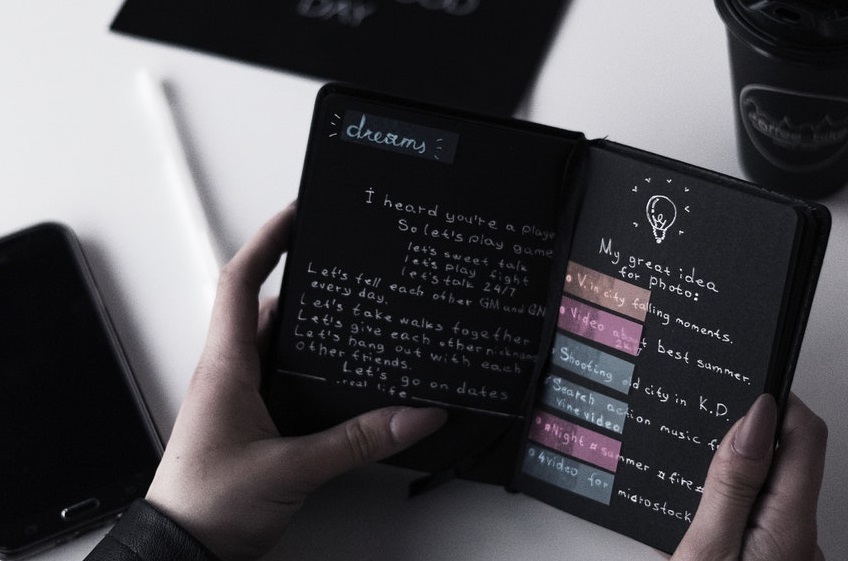 DAY
dreams
I heard you're a playe
So let's play game
let's sweet talk
let's play fight
let's talk 24/7
Let's tell each other GM and GN
every day.
Let's take walks together
Let's give each other nickname
Let's hang out with each
other friends.
Let's go on dates
real life
My great idea
for photo:
V.in city falling moments.
Video about best summer.
Shooting old city in K.D.
Search action music f
vine video
#Night #summer #fire#
4video for microstock